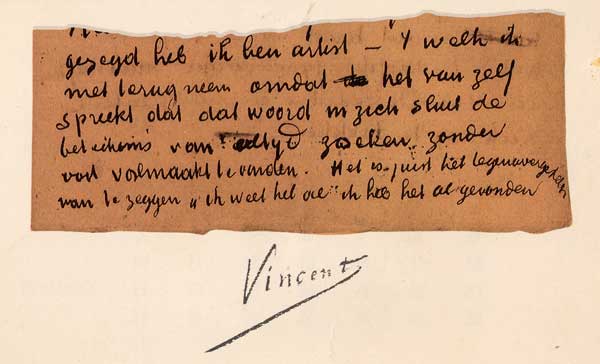 gezegd heb ik ben artist – 't welk ik
niet terug neem omdat het van zelf
spreekt dat dat woord in zich sluit de
beteekenis van altyd zoeken zonder
ooit volmaakt te vinden. Het is juist het tegenovergestelde
van te zeggen „ik weet het al" ik heb het al gevonden
Vincent